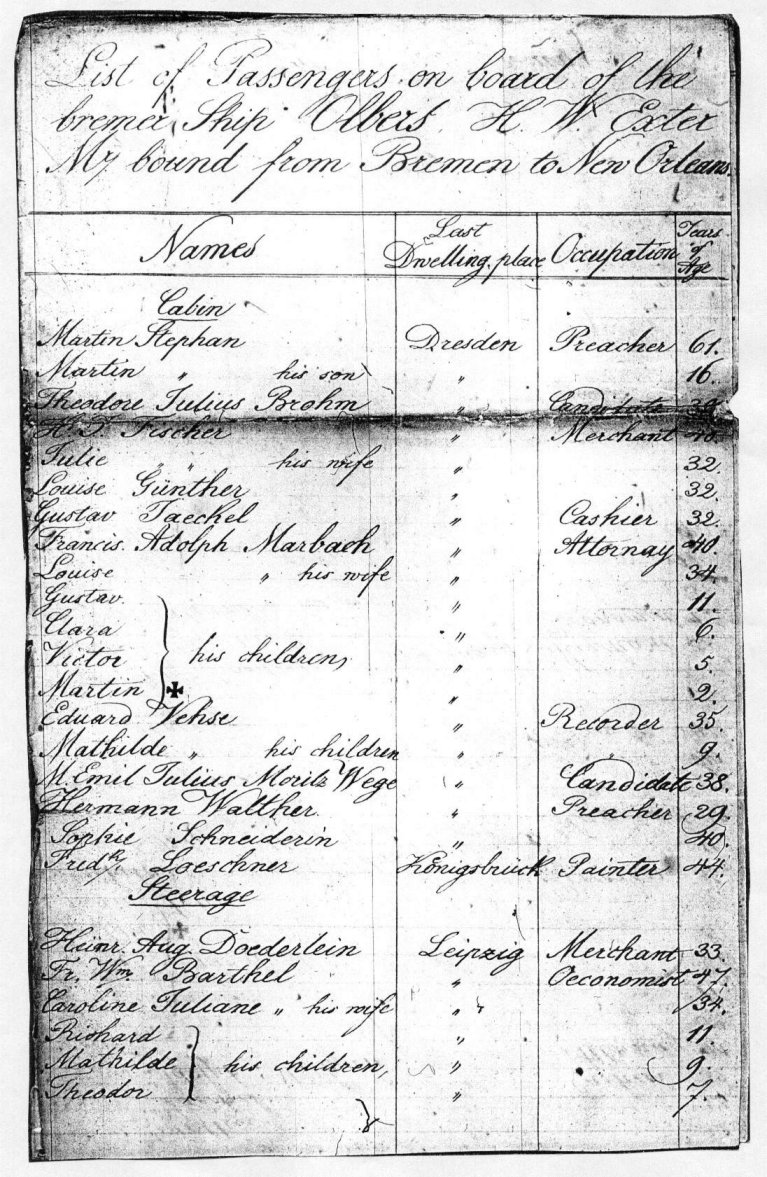 List of Passengers on board of the
bremer Ship Olbers H. W. Exter
Mr bound from Bremen to New Orleans.
Names Last Dwelling place Occupation Years of Age
Cabin
Martin Stephan Dresden Preacher 61.
Martin " his son " 16.
Theodore Julius Brohm " Candidate 30.
Fischer " Merchant 40.
Julie " " his wife " 32.
Louise Günther " 32.
Gustav Jaeckel " Cashier 32.
Francis. Adolph Marbach " Attornay 40.
Louise " his wife " 34
Gustav. " 11.
Clara " 6.
Victor } his children, " 5.
Martin ✠ " 2.
Eduard Vehse " Recorder 35.
Mathilde " his children " 9.
M. Emil Julius Moritz Wege " Candidate 38.
Hermann Walther. " Preacher 29.
Sophie Schneiderin " 40.
Fredk. Loeschner Königsbrück Painter 44.
Steerage
Heinr. Aug. Doederlein Leipzig Merchant 33.
Fr. Wm. Barthel " Oeconomist 47.
Caroline Juliane " his wife " 34.
Richard " 11.
Mathilde } his children, " 9.
Theodor " 7.